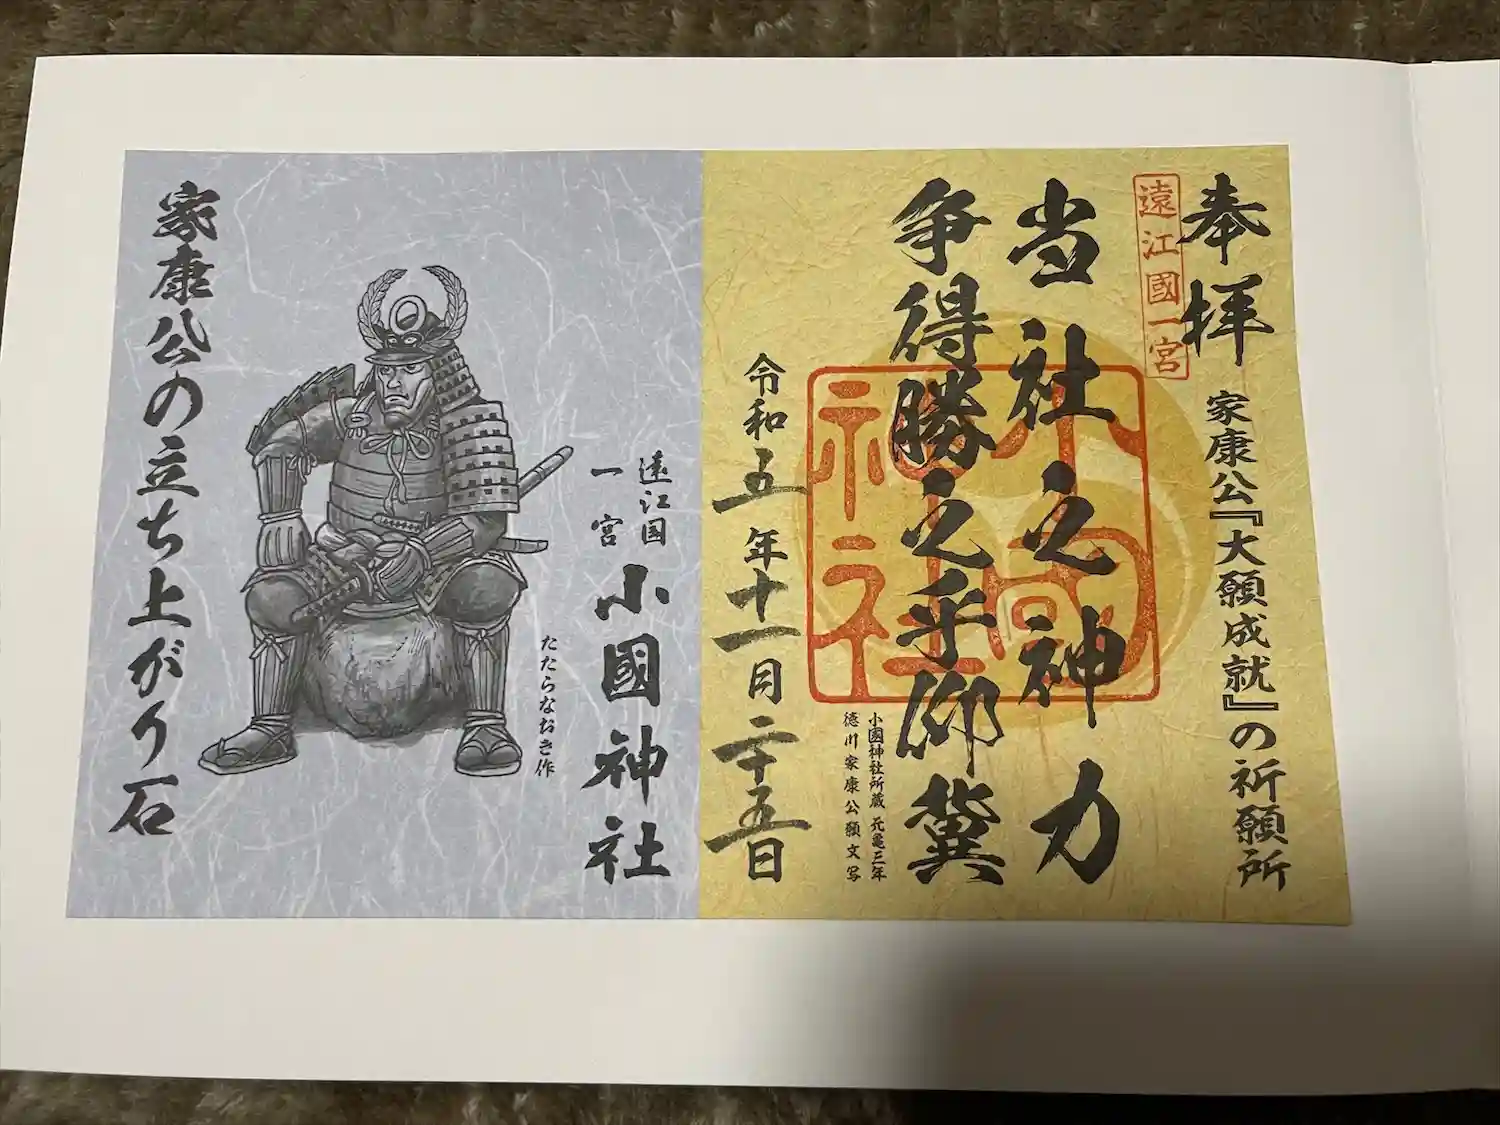 奉拝
家康公『大願成就』の祈願所
遠江國一宮
当社之神力
争得勝之乎仰冀
小國神社
小國神社所蔵 元亀三年
徳川家康公願文写
令和五年十一月二十五日
遠江国
一宮
小國神社
たたらなおき作
家康公の立ち上がり石